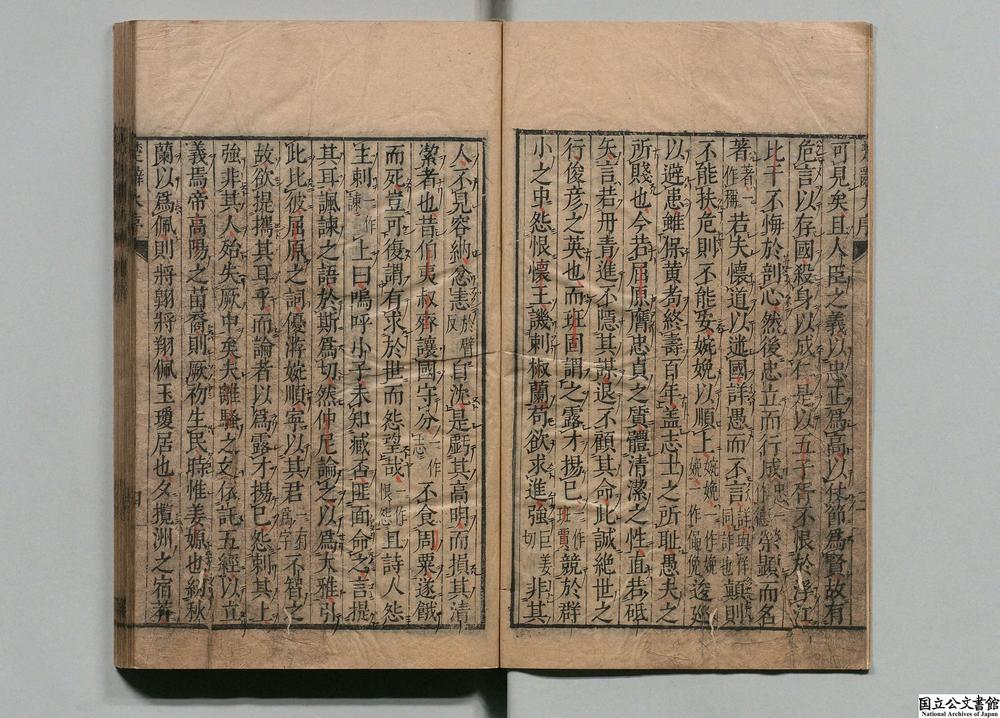 可見矣且人臣之義以忠正爲高以伏節爲賢故有
危言以存國殺身以成仁是以五子胥不恨於浮江
比干不悔於剖心然後忠立而行成榮顯而名
著著一作稱若夫懷道以迷國詳愚而不言詳與佯同詐也顛則
不能扶危則不能安婉娩以順上婉娩一作娩婉一作僶俛逡廵
以避患雖保黄耇終壽百年盖志士之所耻愚夫之
所賤也今若屈原膺忠貞之質體清潔之性直若砥
矢言若丹青進不隱其謀退不顧其命此誠絶世之
行俊彦之英也而班固謂之露才揚己一作班賈競於群
小之中怨恨懷王譏刺椒蘭苟欲求進強巨姜切非其
人不見容納忿恚於臂反自沈是虧其高明而損其清
潔者也昔伯夷叔齊讓國守分一作志不食周粟遂餓
而死豈可復謂有求於世而怨望哉一作恨怨且詩人怨
主刺一作諫上曰嗚呼小子未知臧否匪面命之言提
其耳諷諫之語於斯爲切然仲尼論之以爲大雅引
此比彼屈原之詞優游婉順寧以其君一有爲字不智之
故欲提攜其耳乎而論者以爲露才揚己怨刺其上
強非其人殆失厥中矣夫離騷之文依託五經以立
義焉帝高陽之苗裔則厥初生民時惟姜嫄也紉秋
蘭以爲佩則將翱將翔佩玉瓊居也夕攬洲之宿莽
国立公文書館
National Archives of Japan